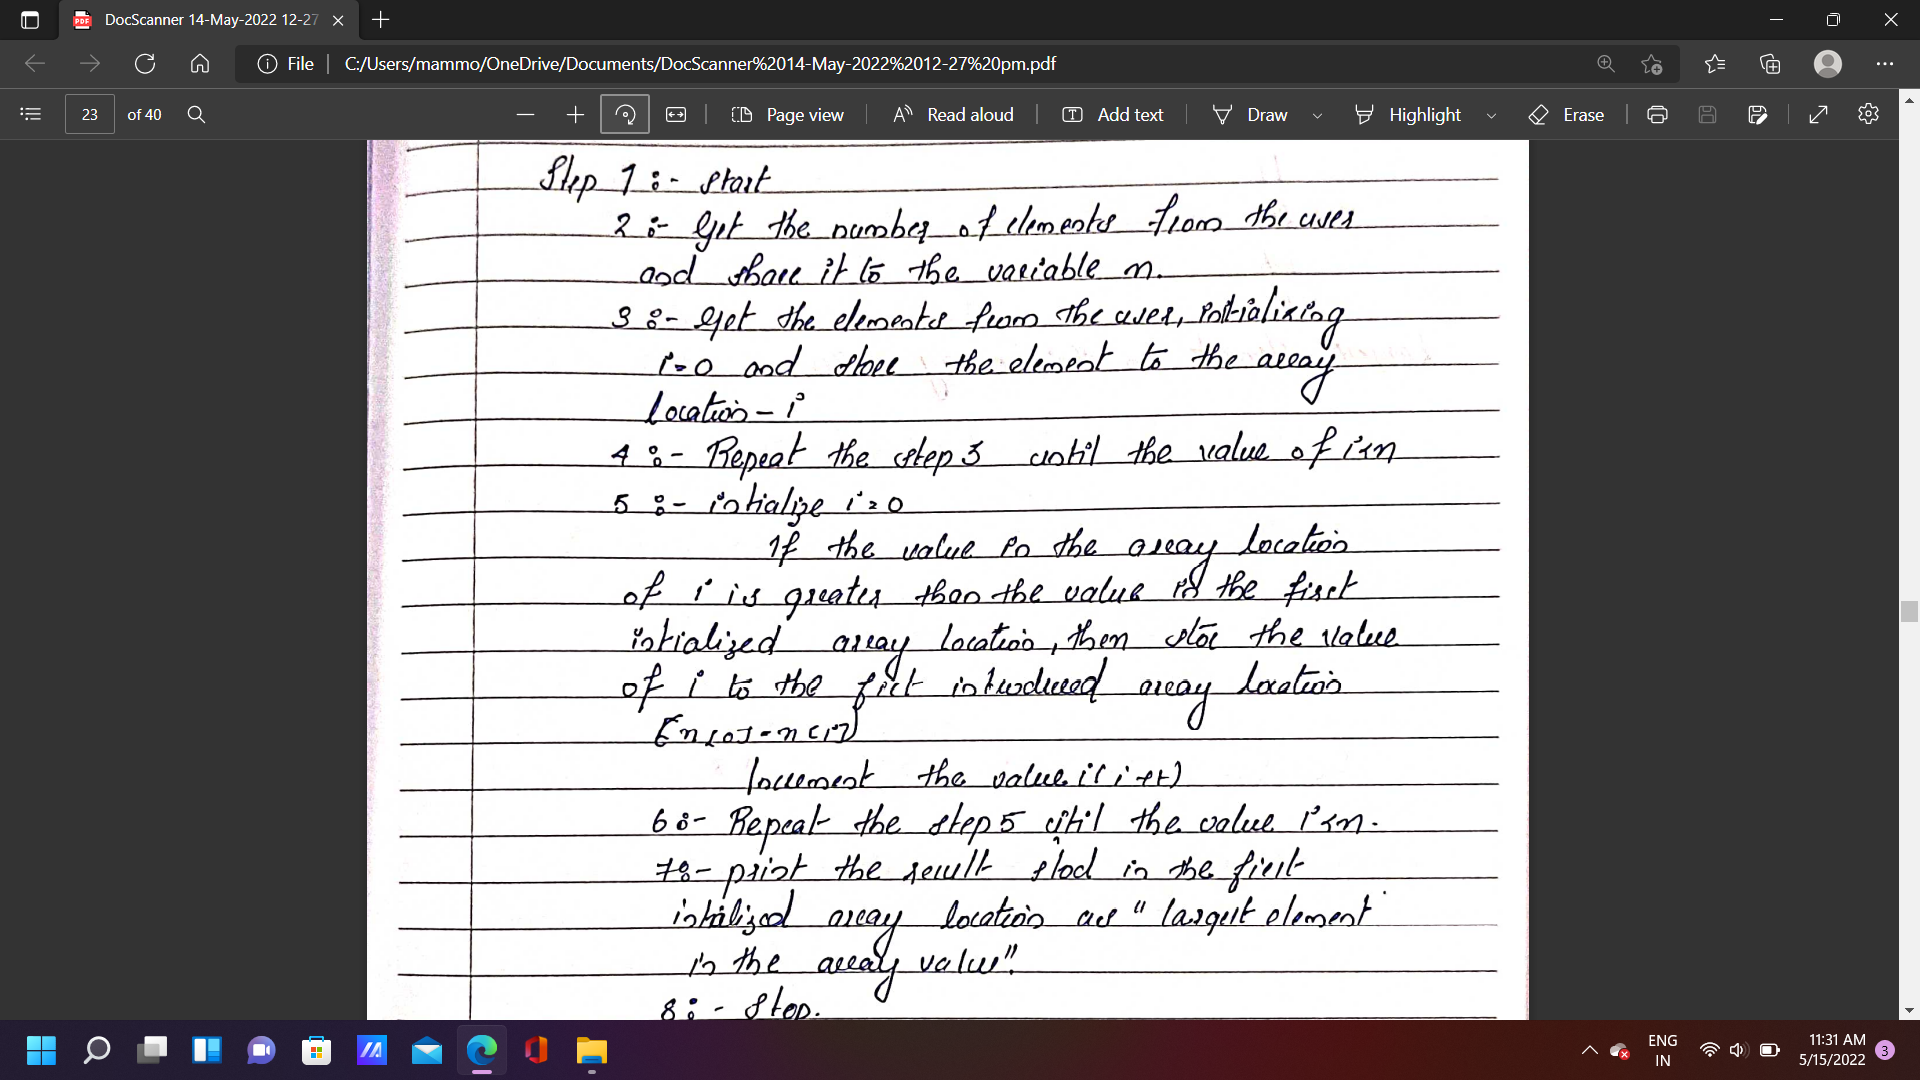 DocScanner 14-May-2022 12-27
File C:/Users/mammo/OneDrive/Documents/DocScanner%2014-May-2022%2012-27%20pm.pdf
23 of 40 Page view Read aloud Add text Draw Highlight Erase
Step 1 :- Start
2 :- Get the number of elements from the user
and share it to the variable n.
3 :- Get the elements from the user, initializing
i=0 and store the element to the array
location - i
4 :- Repeat the step 3 until the value of i<n
5 :- intialize i=0
If the value in the array location
of i is greater than the value in the first
intialized array location, then stoe the value
of i to the first introduced array location
Increment the value i(i++)
6 :- Repeat the step 5 until the value i<n.
7 :- print the result stod in the first
initialized array location as " largest element
in the array value".
8 :- Stop.
ENG
IN
11:31 AM
5/15/2022
3